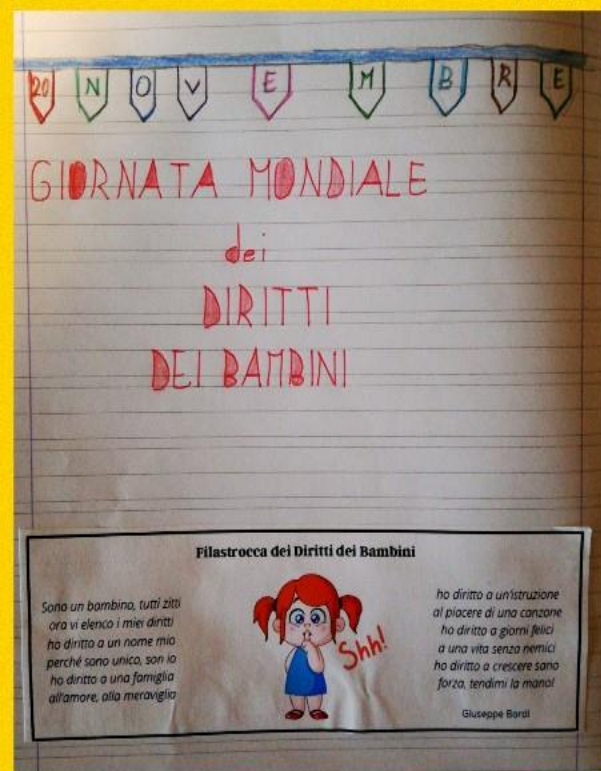 20 NOVEMBRE
GIORNATA MONDIALE
dei
DIRITTI
DEI BAMBINI
Filastrocca dei Diritti dei Bambini
Sono un bambino, tutti zitti
ora vi elenco i miei diritti
ho diritto a un nome mio
perché sono unico, son io
ho diritto a una famiglia
all'amore, alla meraviglia
Shh!
ho diritto a un'istruzione
al piacere di una canzone
ho diritto a giorni felici
a una vita senza nemici
ho diritto a crescere sano
forza, tendimi la mano!
Giuseppe Bordi